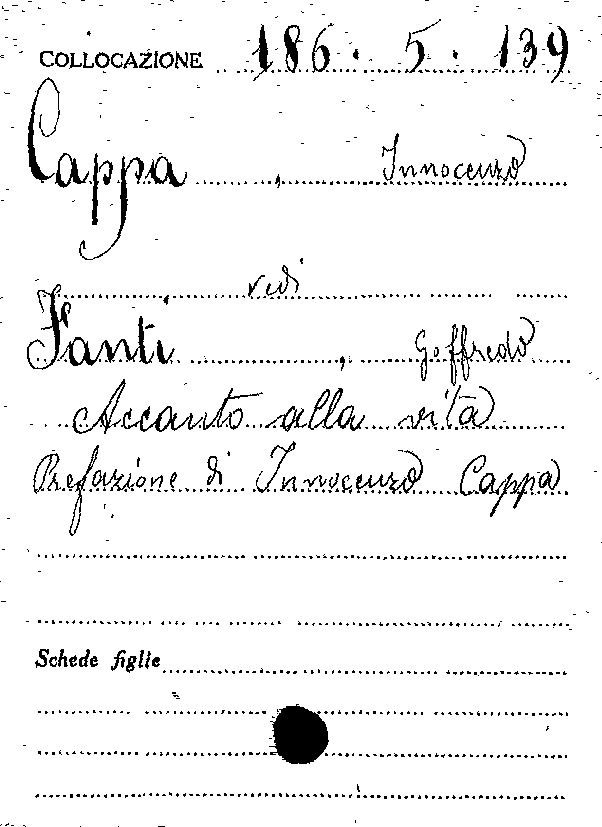 COLLOCAZIONE 186. 5. 139
Cappa , Innocenzo
vedi
Fanti , Goffredo
Accanto alla vita
Prefazione di Innocenzo Cappa
Schede figlie